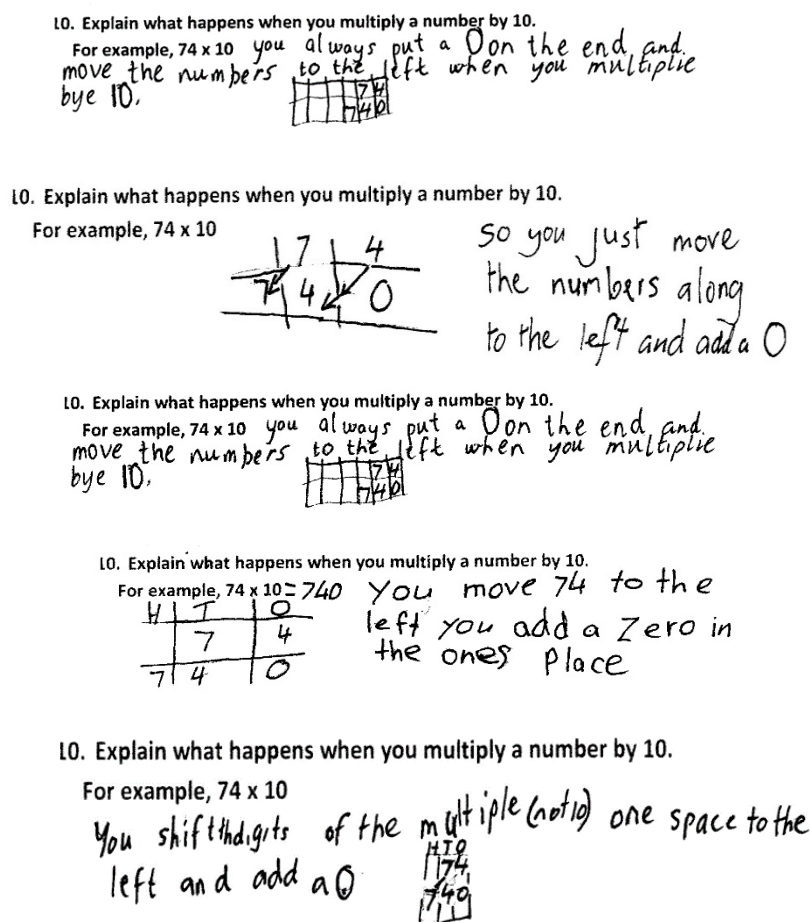 10. Explain what happens when you multiply a number by 10.
For example, 74 x 10 you always put a 0 on the end and.
move the numbers to the left when you multiplie
bye 10.
7 4
7 4 0
10. Explain what happens when you multiply a number by 10.
For example, 74 x 10
7 4
7 4 0
So you just move
the numbers along
to the left and add a 0
10. Explain what happens when you multiply a number by 10.
For example, 74 x 10 you always put a 0 on the end and.
move the numbers to the left when you multiplie
bye 10.
7 4
7 4 0
10. Explain what happens when you multiply a number by 10.
For example, 74 x 10 = 740 You move 74 to the
left you add a Zero in
the ones Place
H T O
7 4
7 4 0
10. Explain what happens when you multiply a number by 10.
For example, 74 x 10
You shift thdigits of the multiple (not 10) one space to the
left and add a 0
H T O
7 4
7 4 0